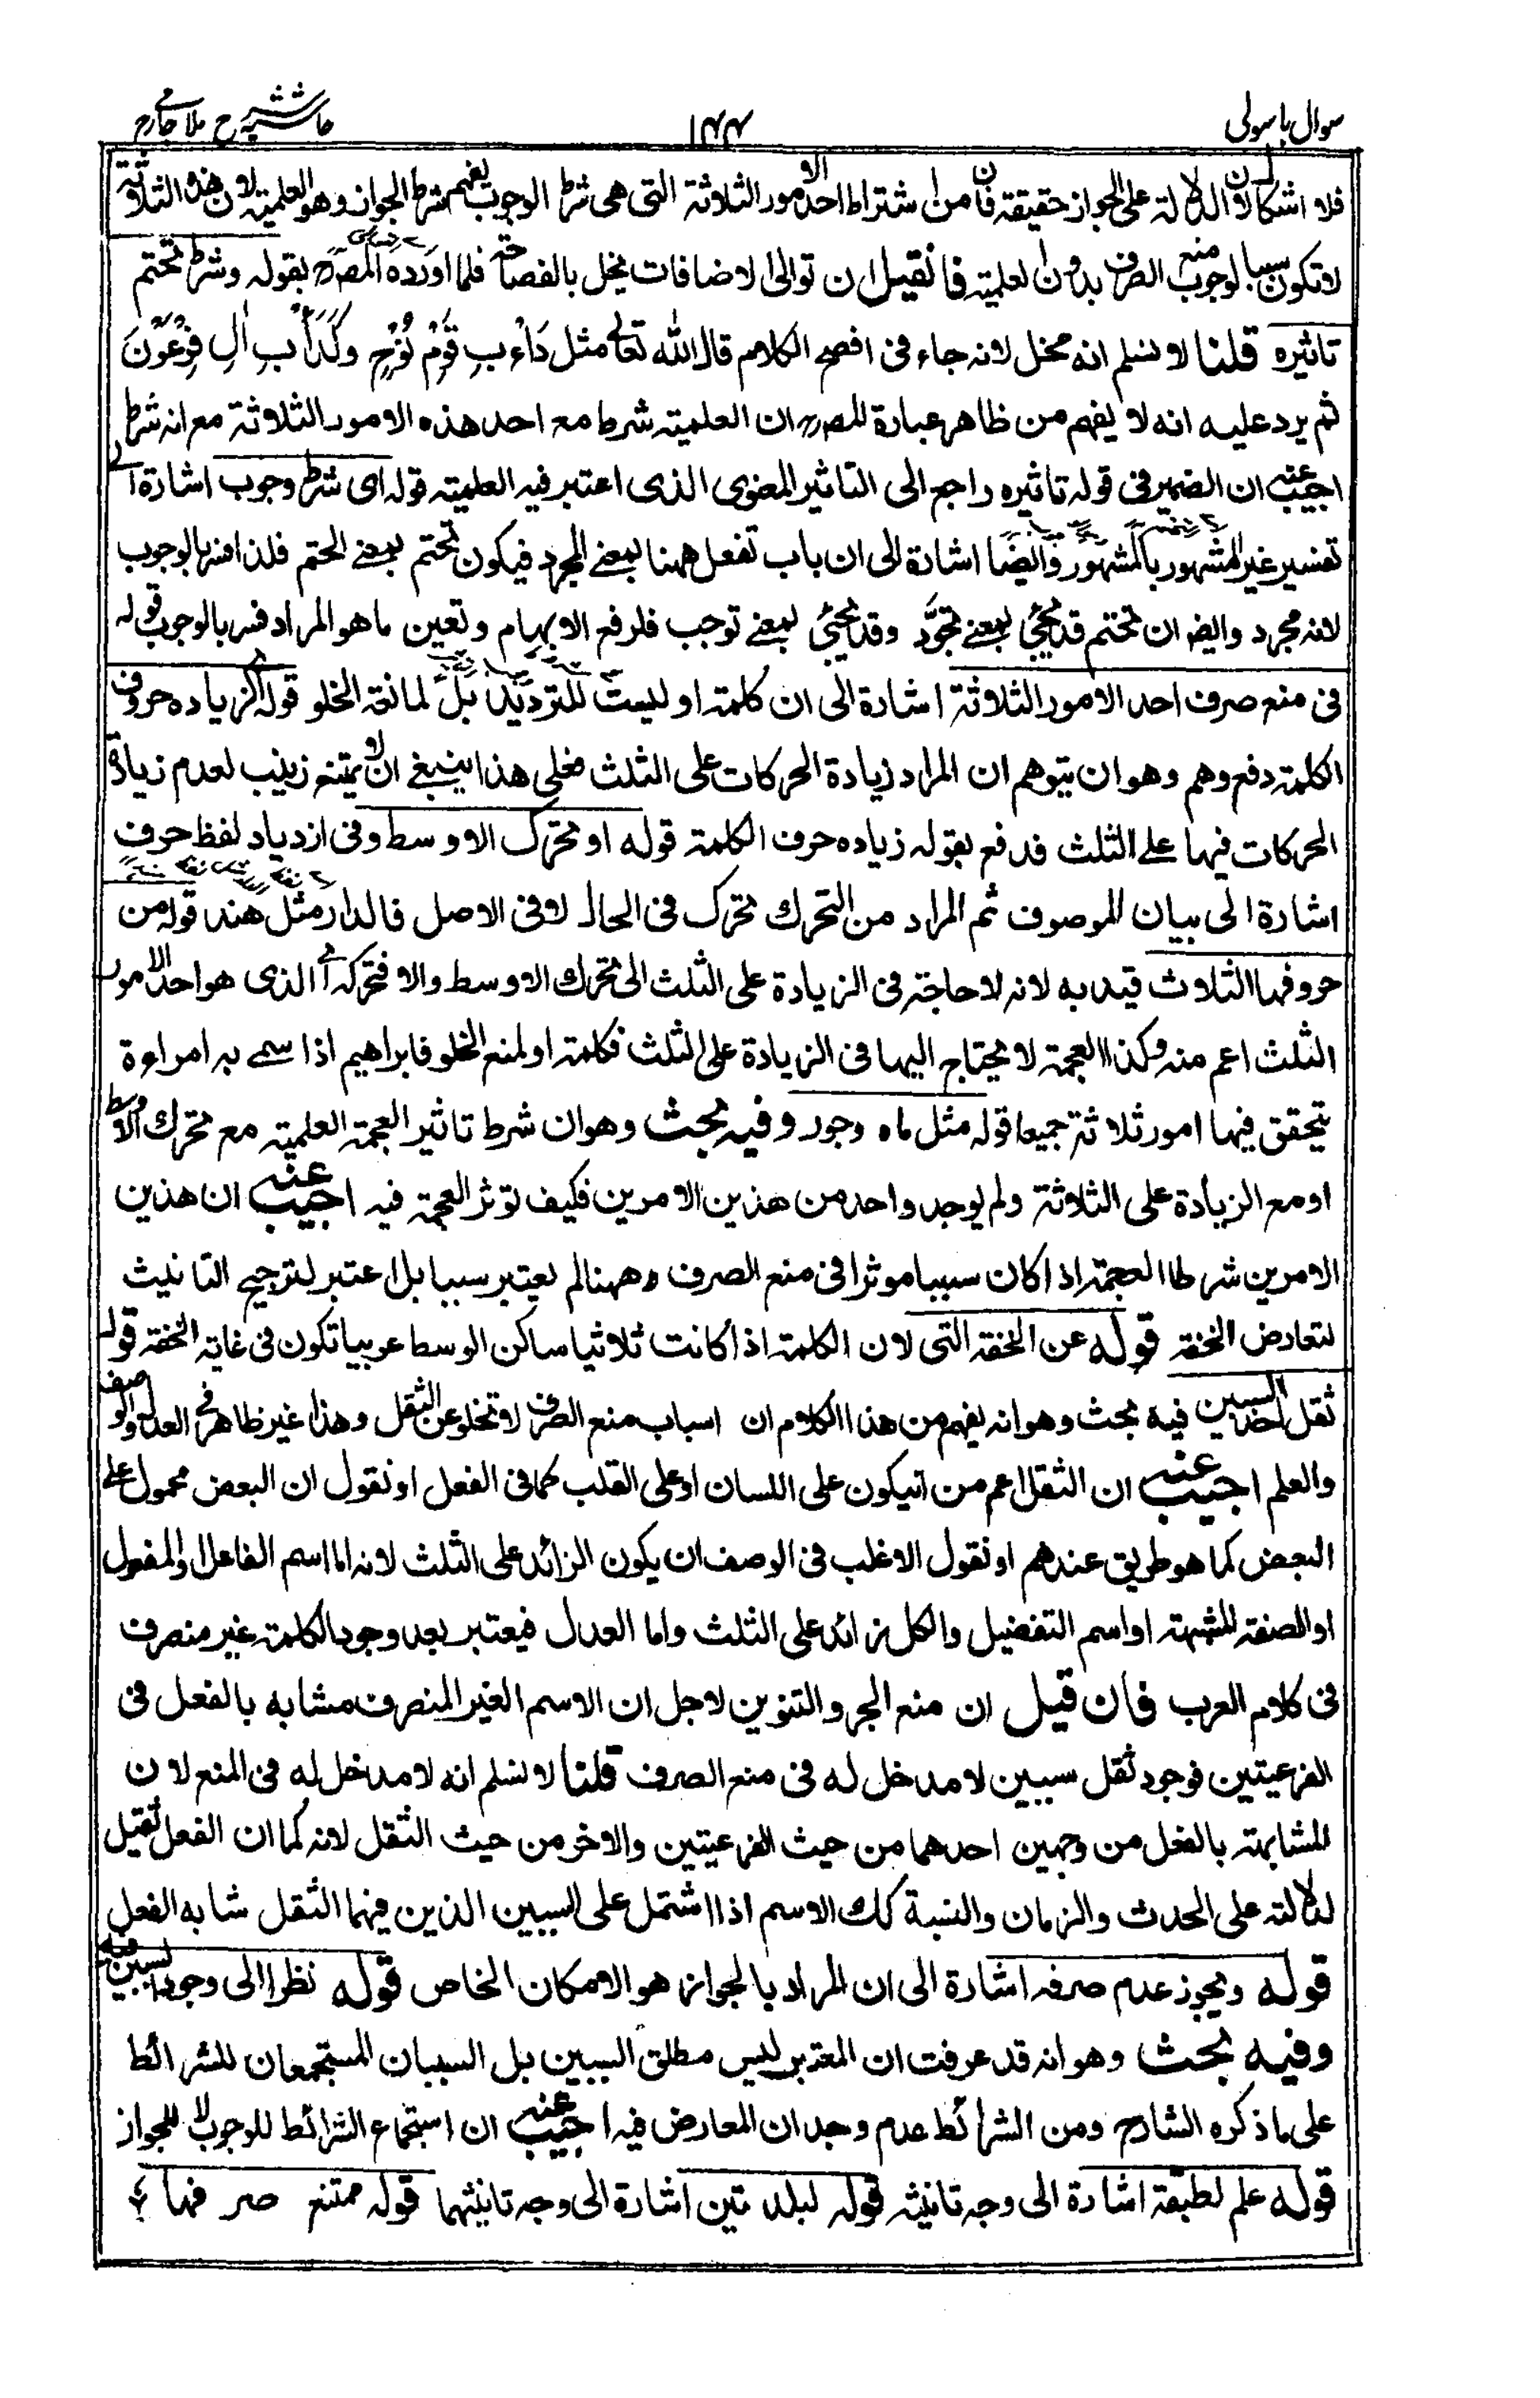 سوال باسولی
۱۴۴
حاشیہ شرح ملا جامی
فلا اشكال لان الدلالة على الجواز حقيقة فان من اشتراط احد الامور الثلاثة التى هى شرط الوجوب يفهم شرط الجواز وهو العلمية لان هذه الثلاثة
لا تكون سببا لوجوب منع الصرف بدون العلمية فان قيل ان توالى الاضافات يخل بالفصاحة فلما اورده المصرح بقوله وشرط تحتم
تاثيره قلنا لا نسلم انه مخل لانه جاء فى افصح الكلام قال الله تعالى مثل دَاْءبِ قَوْمِ نُوْحٍ وكَدَاْبِ اٰلِ فِرْعَوْنَ
ثم يرد عليه انه لا يفهم من ظاهر عبارة المصرح ان العلمية شرط مع احد هذه الامور الثلاثة مع انه شرط
اجيب عنه ان الضمير فى قوله تاثيره راجع الى التاثير المعنوى الذى اعتبر فيه العلمية قوله اى شرط وجوب اشارة الى
تفسير غير المشهور بالمشهور وايضا اشارة الى ان باب تفعل ههنا بمعنے المجرد فيكون تحتم بمعنے الحتم فلذا فسر بالوجوب
لانه مجرد وايضا ان تحتم قد يجئ بمعنے تجوّد وقد يجئ بمعنے توجب فلرفع الابهام وتعين ما هو المراد فسر بالوجوب قوله
فى منع صرف احد الامور الثلاثة اشارة الى ان كلمة او ليست للترديد بل لمانعة الخلو قوله اى زياده حروف
الكلمة دفع وهم وهو ان يتوهم ان المراد زيادة الحركات على الثلث فعلى هذا ينبغے ان لا يمتنع زينب لعدم زيادة
الحركات فيها على الثلث فدفع بقوله زياده حرف الكلمة قوله او تحرك الاوسط وفى ازدياد لفظ حرف
اشارة الى بيان الموصوف ثم المراد من التحرك تحرك فى الحال لا فى الاصل فالدار مثل هند قوله من
حروفها الثلاث قيد به لانه لا حاجة فى الزيادة على الثلث الى تحرك الاوسط والا فتحركه الذى هو احد الامور
الثلث اعم منه وكذا العجمة لا يحتاج اليها فى الزيادة على الثلث فكلمة او لمنع الخلو فابراهيم اذا سمے به امراءة
يتحقق فيها امور ثلاثة جميعا قوله مثل ماه وجور وفيه بحث وهو ان شرط تاثير العجمة العلمية مع تحرك الاوسط
او مع الزيادة على الثلاثة ولم يوجد واحد من هذين الامرين فكيف توثر العجمة فيه اجيب عنه ان هذين
الامرين شرطا العجمة اذا كان سببا موثرا فى منع الصرف وههنا لم يعتبر سببا بل اعتبر لترجيح التانيث
لتعارض الخفة قوله عن الخفة التى لان الكلمة اذا كانت ثلاثيا ساكن الوسط عربيا تكون فى غاية الخفة قوله
ثقل احد السببين فيه بحث وهو انه يفهم من هذا الكلام ان اسباب منع الصرف لا تخلو عن الثقل وهذا غير ظاهر فى العدل والوصف
والعلم اجيب عنه ان الثقل اعم من انيكون على اللسان او على القلب كما فى الفعل او نقول ان البعض محمول على
البعض كما هو طريق عندهم او نقول الاغلب فى الوصف ان يكون الزائد على الثلث لانه اما اسم الفاعل او المفعول
او الصفة المشبهة او اسم التفضيل والكل زائد على الثلث واما العدل فيعتبر بعد وجود الكلمة غير منصرف
فى كلام العرب فان قيل ان منع الجر والتنوين لاجل ان الاسم الغير المنصرف مشابه بالفعل فى
الفرعيتين فوجود ثقل سببين لا مدخل له فى منع الصرف قلنا لا نسلم انه لا مدخل له فى المنع لان
المشابهة بالفعل من وجهين احدهما من حيث الفرعيتين والاخر من حيث الثقل لانه كما ان الفعل ثقيل
لدلالته على الحدث والزمان والنسبة كك الاسم اذا اشتمل على السببين الذين فيهما الثقل شابه الفعل
قوله ويجوز عدم صرفه اشارة الى ان المراد بالجواز هو الامكان الخاص قوله نظرا الى وجود السببين فيه
وفيه بحث وهو انه قد عرفت ان المعتبر ليس مطلق السببين بل السببان المستجمعان للشرائط
على ما ذكره الشارح ومن الشرائط عدم وجدان المعارض فيه اجيب عنه ان استجماع الشرائط للوجوب لا للجواز
قوله علم لطبقة اشارة الى وجه تانيثه قوله لبلدتين اشارة الى وجه تانيثهما قوله ممتنع صرفها